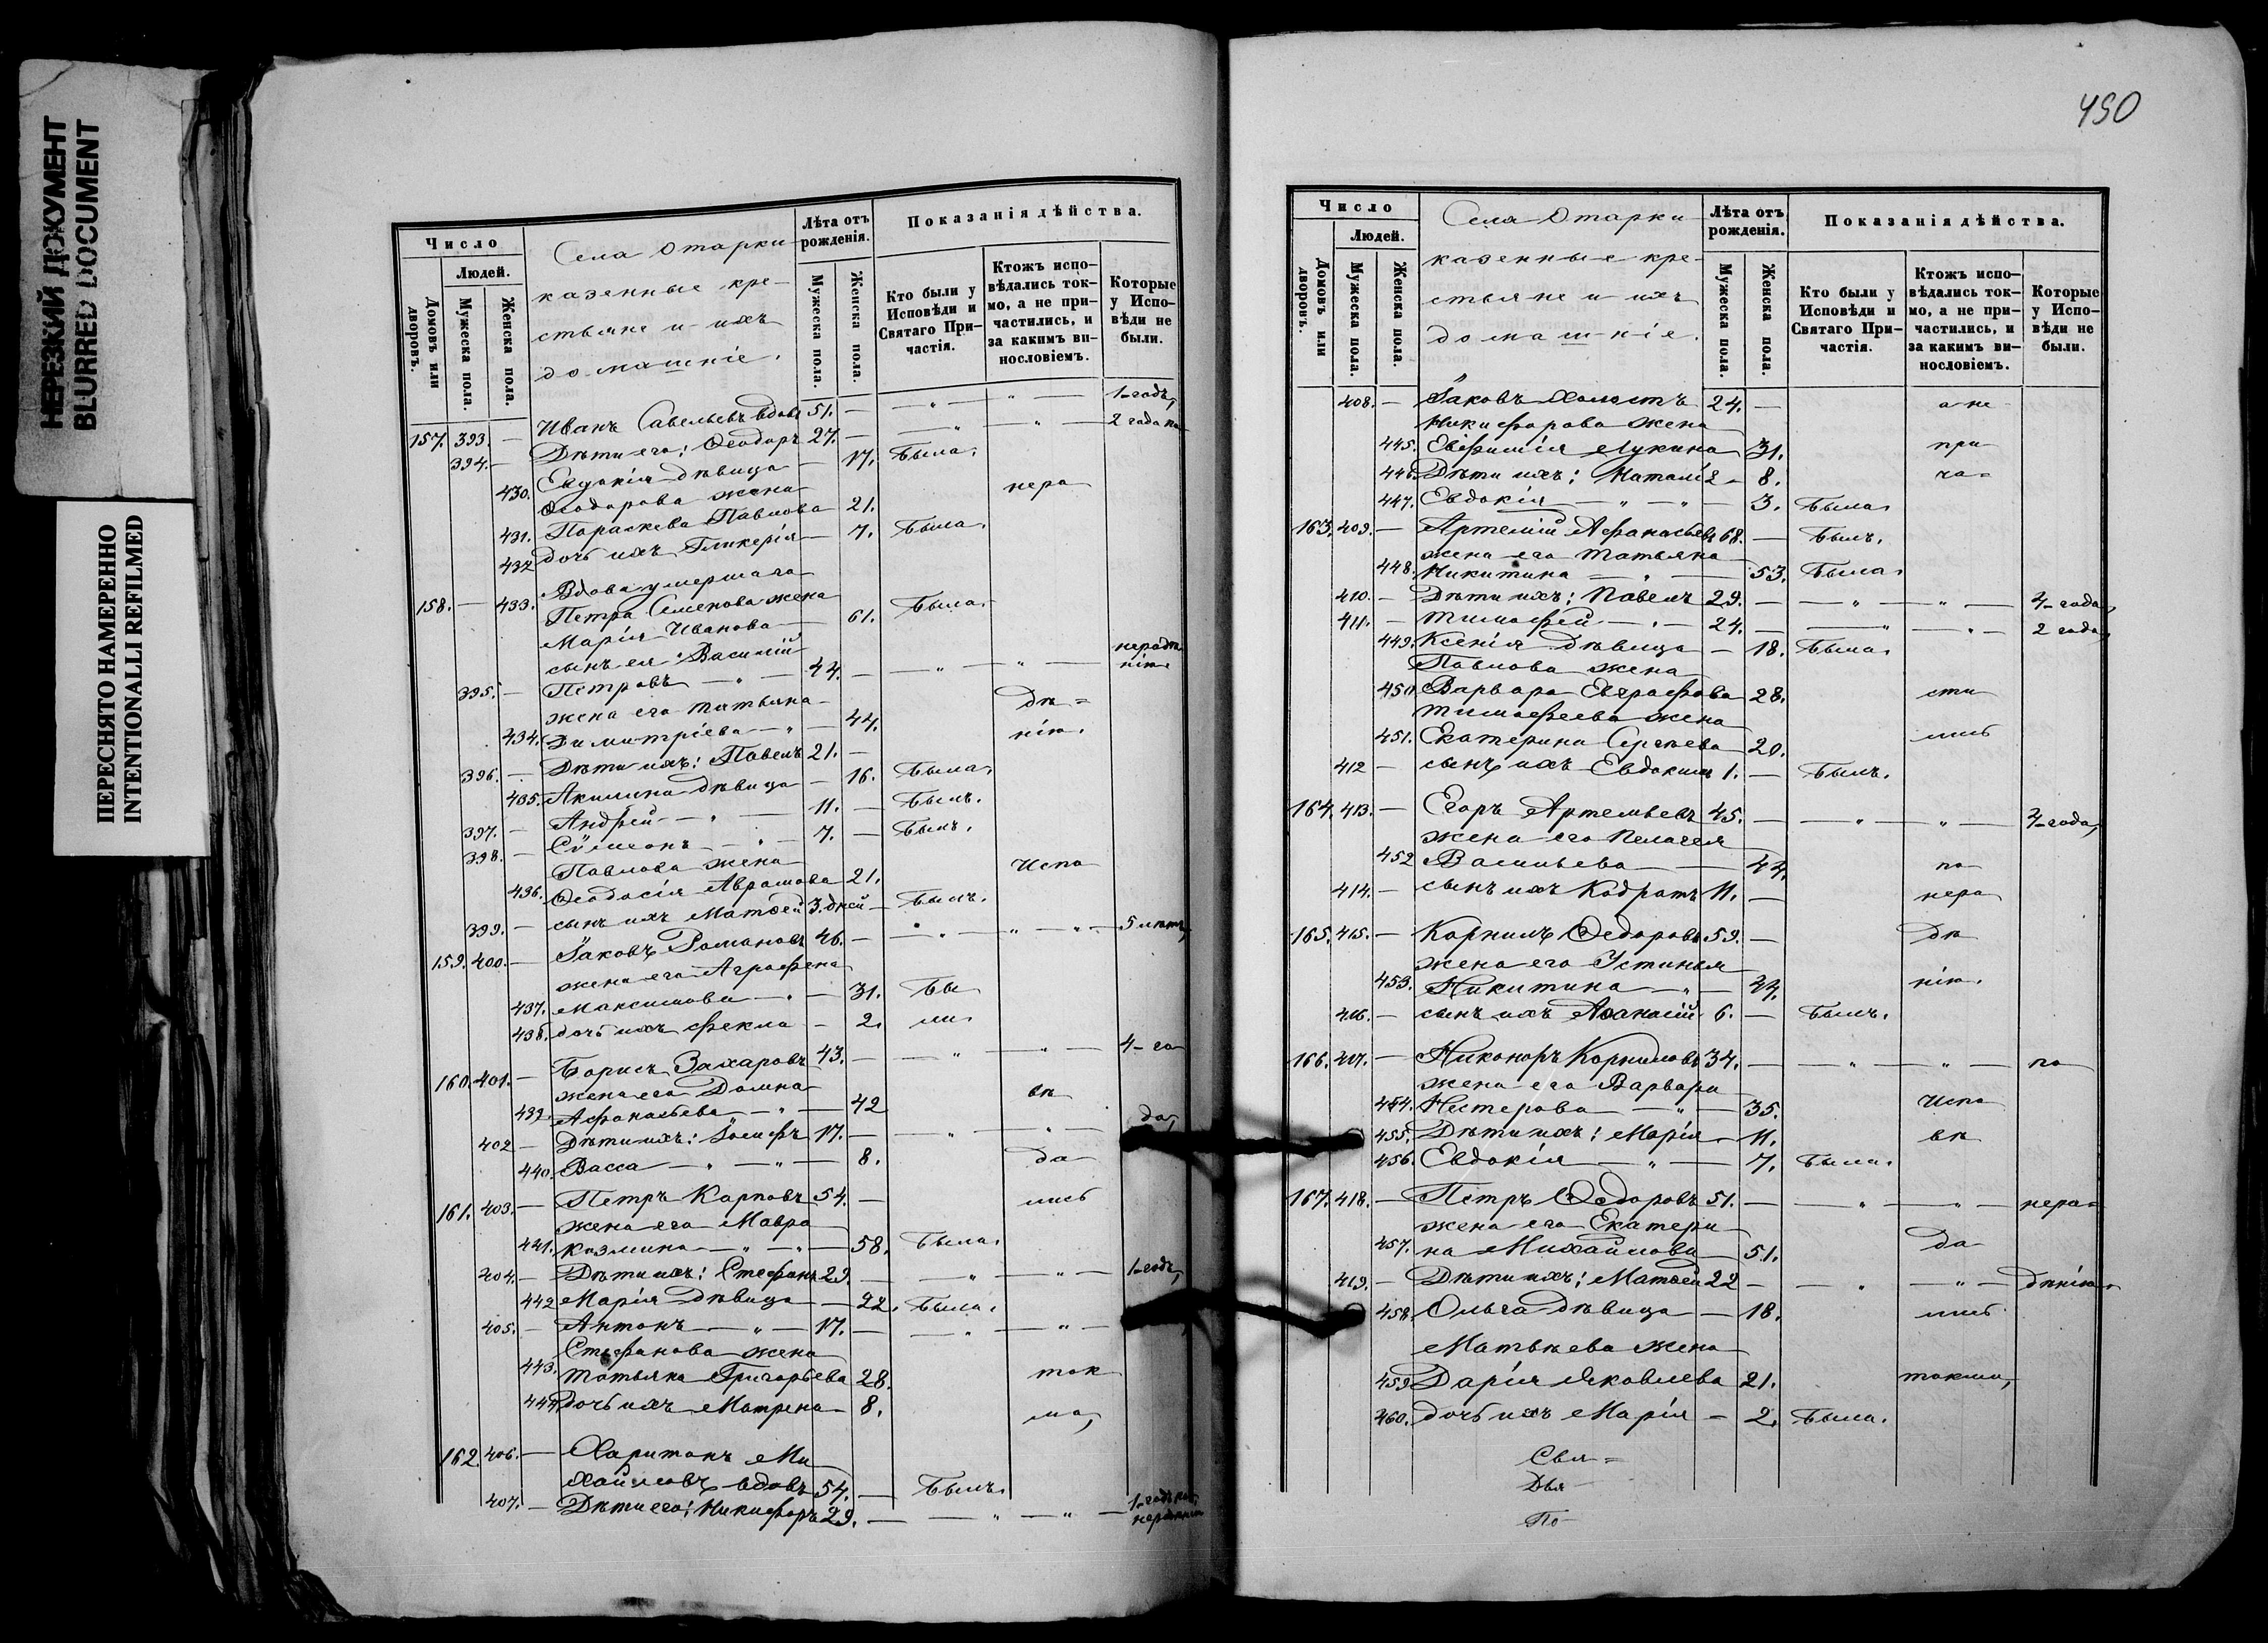 НЕРЕЗКИЙ ДОКУМЕНТ
BLURRED DOCUMENT
ПЕРЕСНЯТО НАМЕРЕННО
INTENTIONALLI REFILMED
Число
Людей.
Домовъ или дворовъ.
Мужеска пола.
Женска пола.
Села Отарки
казенные кре-
стьяне и ихъ
домашніе.
Лѣта отъ рожденія.
Мужеска пола.
Женска пола.
Показанія дѣйства.
Кто были у Исповѣди и Святаго При-частія.
Ктожъ испо-вѣдались ток-мо, а не при-частились, и за какимъ ви-нословіемъ.
Которые у Испо-вѣди не были.
157. 393. — Иванъ Савельевъ вдовъ 51. — — „ — „ — 1-годъ,
394. — Дѣти его: Ѳеодоръ 27. — — „ — „ — 2 года по
430. Евдокія дѣвица — 17. Была.
Ѳеодорова жена
431. Параскева Павлова 21. нера
432 дочь ихъ Гликерія — 7. Была.
Вдова умершаго
158. — 433. Петра Семенова жена
Марія Иванова — 61. Была.
сынъ ея: Василій
395. — Петровъ — „ — 44. — — „ — „ — нерадѣ
нію
жена его Татьяна
434. Димитріева — „ — 44. Дѣ=
396. — Дѣти ихъ: Павелъ 21. — нію.
435. Акилина дѣвица — 16. Была.
397. — Андрей — „ — 11. — Былъ.
398. — Сѵмеонъ — „ — 7. — Былъ.
Павлова жена
436. Ѳеодосія Аврамова 21. Испо
399. — сынъ ихъ Матѳей 3. дней — Былъ.
159. 400. — Іаковъ Романовъ 46. — — „ — „ — „ — 5 лѣтъ,
жена его Аграфена
437. Максимова — „ — 31. Бы
438. дочь ихъ Фекла — 2. ли.
160. 401. — Борисъ Захаровъ 43. — — „ — „ — 4- го
жена его Домна
439. Афанасьева — „ — 42 вѣ
402 — Дѣти ихъ: Іосифъ 17. — — „ — „ — да,
440. Васса — „ — „ — 8. да
161. 403. — Петръ Карповъ 54. — лись
жена его Мавра
441. Козмина — „ — „ — 58. Была.
404. — Дѣти ихъ: Стефанъ 29. — — „ — „ — 1-годъ,
442 Марія дѣвица — 22. Была.
405. — Антонъ — „ — 17. — — „ — „ —
Стефанова жена
443. Татьяна Григорьева 28. ток
444. дочь ихъ Матрена — 8. мо,
162. 406. — Харитонъ Ми
хайловъ вдовъ 54. — Былъ.
407. — Дѣти его: Никифоръ 29. — — „ — „ — 1-годъ по
нерадѣнію
490
Число
Людей.
Домовъ или дворовъ.
Мужеска пола.
Женска пола.
Села Отарки
казенные кре-
стьяне и ихъ
домашніе.
Лѣта отъ рожденія.
Мужеска пола.
Женска пола.
Показанія дѣйства.
Кто были у Исповѣди и Святаго При-частія.
Ктожъ испо-вѣдались ток-мо, а не при-частились, и за какимъ ви-нословіемъ.
Которые у Испо-вѣди не были.
408. — Іаковъ холостъ 24. — а не
Никифорова жена
445. Евфимія Лукина 31. при
446. Дѣти ихъ: Наталія — 8. ча=
447. Евдокія — „ — „ — 3. Была.
163. 409. — Артемій Афанасьевъ 68. — Былъ.
жена его Татьяна
448. Никитина — „ — 53. Была.
410. — Дѣти ихъ: Павелъ 29. — — „ — „ — 4- года,
411. — Тимофей — „ — 24. — — „ — „ — 2 года,
449. Ксенія дѣвица — 18. Была.
Павлова жена
450 Варвара Евграфова 28. сти
Тимофеева жена
451. Екатерина Сергѣева 20. лись
412 — сынъ ихъ Евдокимъ 1. — Былъ.
164. 413. — Егоръ Артемьевъ 45. — — „ — „ — 4-года,
жена его Пелагея
452 Васильева — 44. по
414. — сынъ ихъ Кодратъ 11. — нера
165. 415. — Корнилъ Ѳедоровъ 59. — Дѣ
жена его Устинья
453. Никитина — „ — 44. нію.
416. — сынъ ихъ Аѳанасій 6. — Былъ.
166. 417. — Никаноръ Корниловъ 34. — — „ — „ — по
жена его Варвара
454. Нестерова — „ — 35. Испо
455. Дѣти ихъ: Марія — 11. вѣ
456. Евдокія — „ — 7. Была.
167. 418. — Петръ Ѳедоровъ 51. — — „ — „ — нера=
жена его Екатери
457. на Михайлова — 51. да
419. — Дѣти ихъ: Матѳей 22 — „ — „ — дѣнію
458. Ольга дѣвица — 18. лись
Матвѣева жена
459 Дарія Яковлева 21. токмо,
460. дочь ихъ Марія — 2. Была.
Свя=
Дья
По